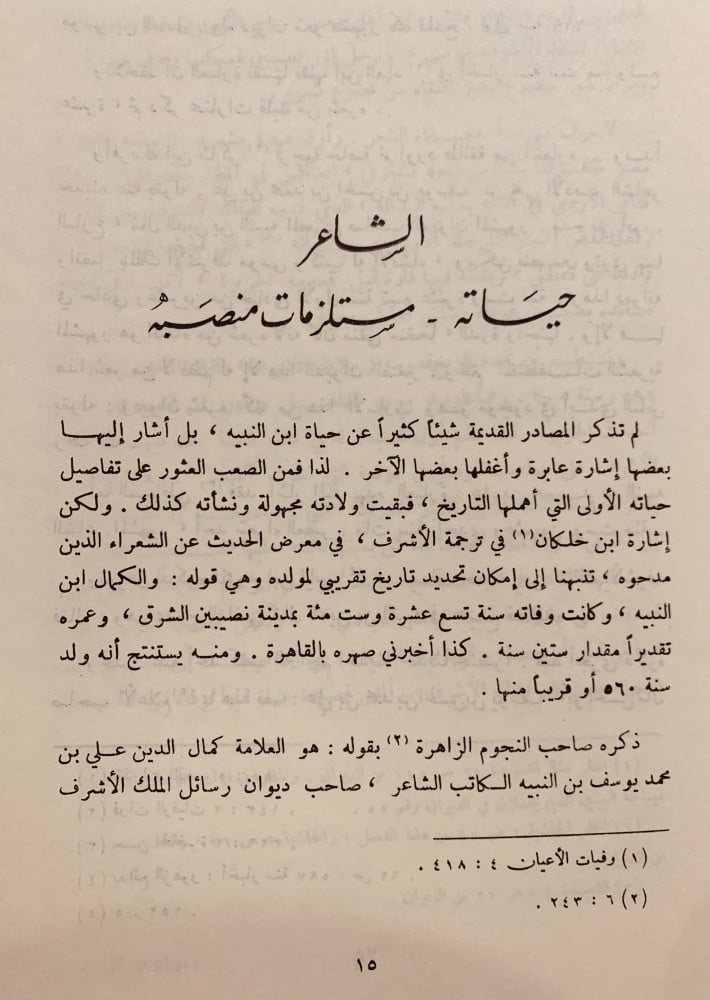 الشاعر
حياته - مستلزمات منصبه
لم تذكر المصادر القديمة شيئاً كثيراً عن حياة ابن النبيه ، بل أشار إليها
بعضها إشارة عابرة وأغفلها بعضها الآخر . لذا فمن الصعب العثور على تفاصيل
حياته الأولى التي أهملها التاريخ ، فبقيت ولادته مجهولة ونشأته كذلك . ولكن
إشارة ابن خلكان(١) في ترجمة الأشرف ، في معرض الحديث عن الشعراء الذين
مدحوه ، تنبهنا إلى إمكان تحديد تاريخ تقريبي لمولده وهي قوله : والكمال ابن
النبيه ، وكانت وفاته سنة تسع عشرة وست مئة بمدينة نصيبين الشرق ، وعمره
تقديراً مقدار ستين سنة . كذا أخبرني صهره بالقاهرة . ومنه يستنتج أنه ولد
سنة ٥٦٠ أو قريباً منها .
ذكره صاحب النجوم الزاهرة (٢) بقوله : هو العلامة كمال الدين علي بن
محمد يوسف بن النبيه الكاتب الشاعر ، صاحب ديوان رسائل الملك الأشرف
(١) وفيات الأعيان ٤ : ٤١٨ .
(٢) ٦ : ٢٤٣ .
١٥